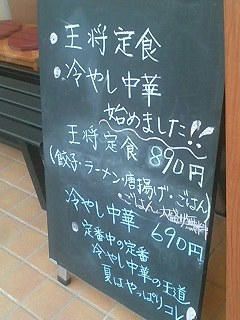 ・王将定食
・冷やし中華
始めました!!
王将定食 890円
(餃子・ラーメン・唐揚げ・ごはん)
・ごはん大盛り無料
冷やし中華 690円
定番中の定番
冷やし中華の王道
夏はやっぱりコレ